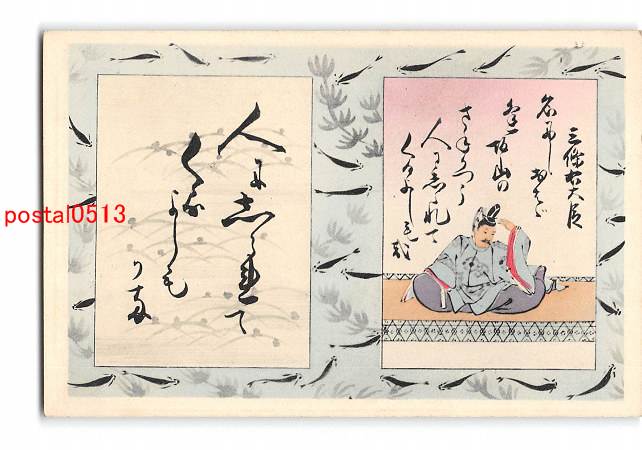 三條右大臣
名にしおはゞ
逢坂山の
さねかつら
人に志られて
くるよしも哉
人に志られて
くる
よしも
かな
postal0513